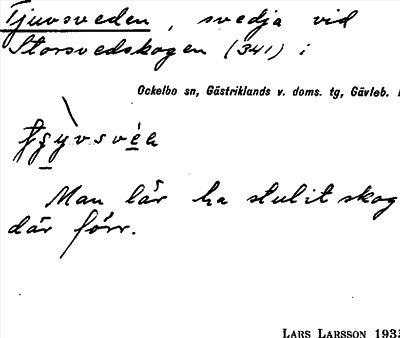 Tjuvsveden, svedja vid
Storsvedskogen (341) i
Ockelbo sn, Gästriklands v. doms. tg, Gävleb.
Man lär ha stulit skog
där förr.
LARS LARSSON 1935